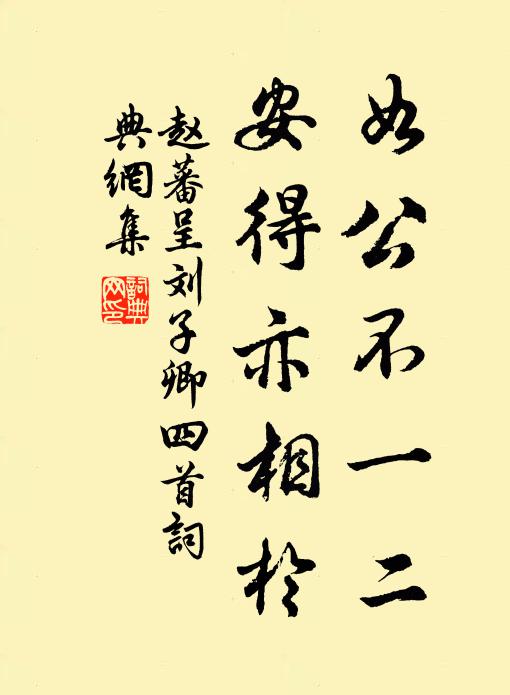 如公不一二
安得亦相於
赵蕃呈刘子卿四首詞
典網集
詞典网印